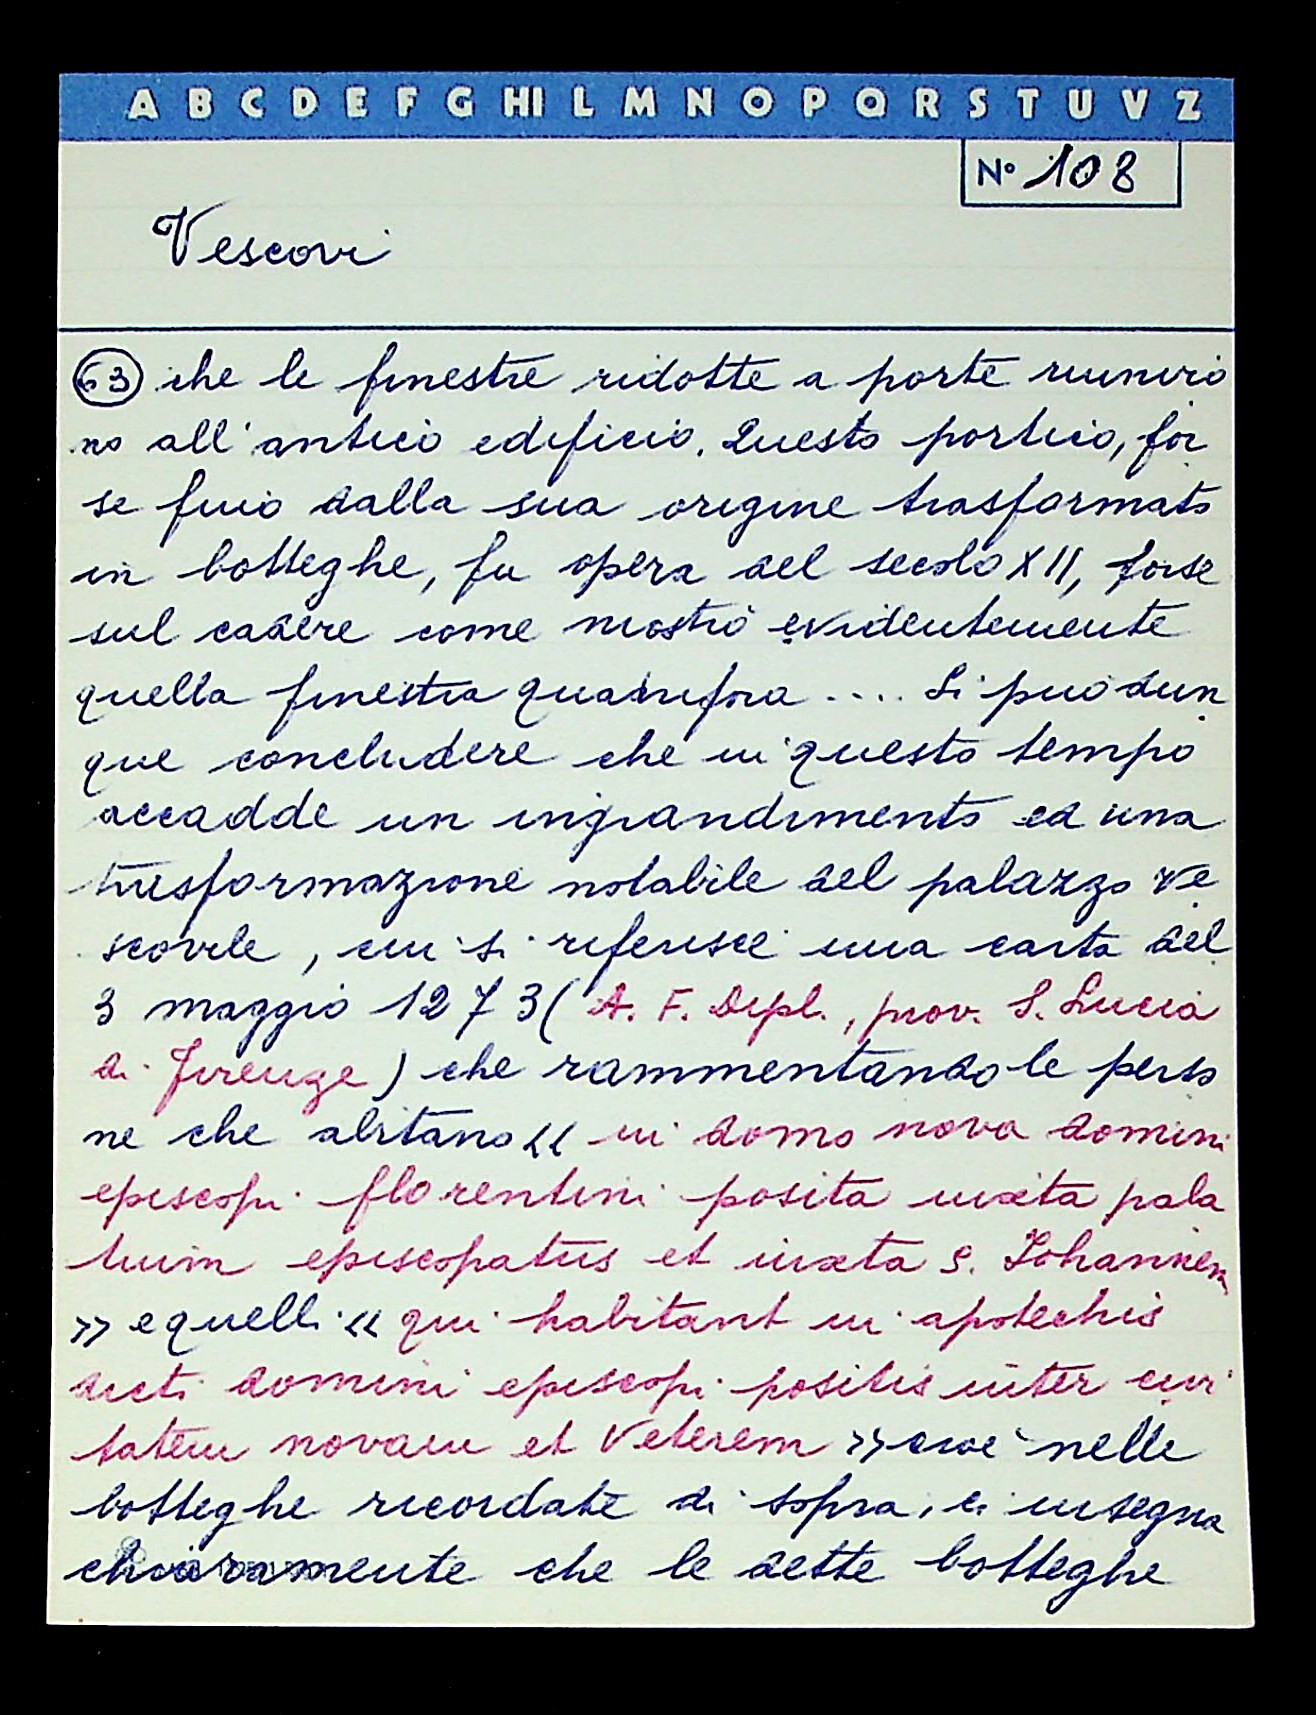 A B C D E F G HI L M N O P Q R S T U V Z
N° 108
Vescovi
63 che le finestre ridotte a porte riuniro
no all'antico edificio. Questo portico, for
se fino dalla sua origine trasformato
in botteghe, fu opera del secolo XII, forse
sul cadere come mostrò evidentemente
quella finestra quadrifora .... Si può dun
que concludere che in questo tempo
accadde un ingrandimento ed una
trasformazione notabile del palazzo ve
scovile, cui si riferisce una carta del
3 maggio 1273 (A. F. Dipl., prov. S. Lucia
di Firenze) che rammentando le perso
ne che abitano << in domo nova domini
episcopi florentini posita iuxta pala
tium episcopatus et iuxta S. Iohannem
>> e quelli << qui habitant in apothechis
dicti domini episcopi positis inter civi
tatem novam et Veterem >> cioè nelle
botteghe ricordate di sopra, ci insegna
chiaramente che le dette botteghe